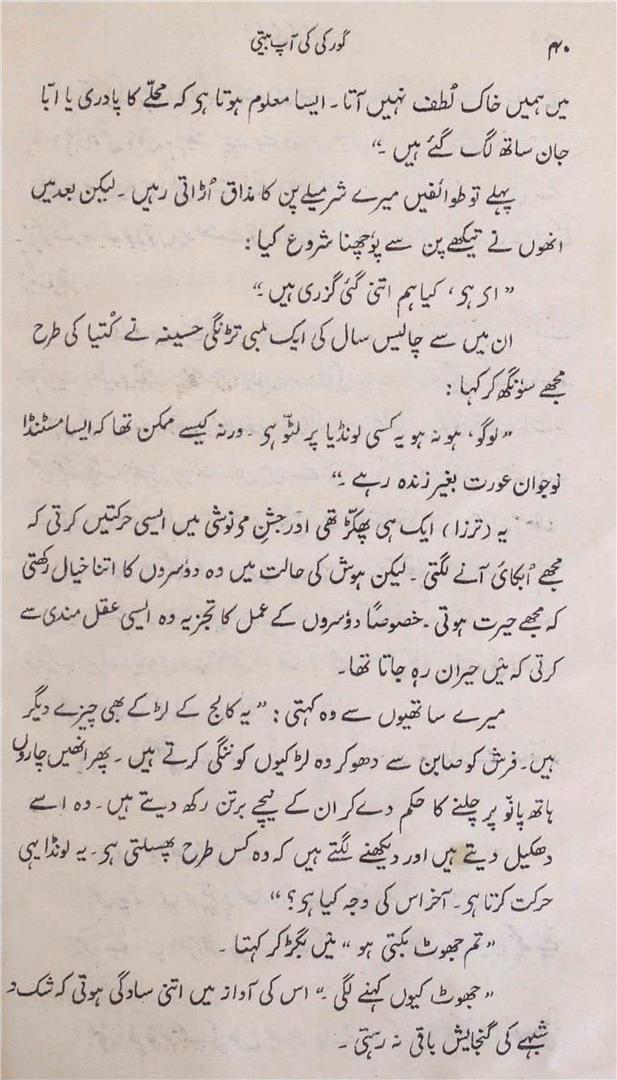 ۴۰ گورکی کی آپ بیتی
میں ہمیں خاک لُطف نہیں آتا۔ ایسا معلوم ہوتا ہی کہ محلّے کا پادری یا ابّا
جان ساتھ لگ گئے ہیں ۔“
پہلے تو طوائفیں میرے شرمیلے پن کا مذاق اُڑاتی رہیں ۔ لیکن بعد میں
انھوں نے تیکھے پن سے پوٗچھنا شروع کیا :
” ای ہی، کیا ہم اتنی گئی گزری ہیں ۔“
ان میں سے چالیس سال کی ایک لمبی تڑنگی حسینہ نے کُتیا کی طرح
مجھے سوٗنگھ کر کہا :
” لوگو، ہو نہ ہو یہ کسی لونڈیا پر لٹّو ہی ۔ ورنہ کیسے ممکن تھا کہ ایسا مسٹنڈا
نوجوان عورت بغیر زندہ رہے ۔“
یہ (ترزا) ایک ہی پھکڑ تھی اور جشنِ مَو نوشی میں ایسی حرکتیں کرتی کہ
مجھے اُبکائی آنے لگتی ۔ لیکن ہوش کی حالت میں وہ دوٗسروں کا اتنا خیال رکھتی
کہ مجھے حیرت ہوتی ۔ خصوصاً دوٗسروں کے عمل کا تجزیہ وہ ایسی عقل مندی سے
کرتی کہ مَیں حیران رہ جاتا تھا۔
میرے ساتھیوں سے وہ کہتی : ” یہ کالج کے لڑکے بھی چیزے دیگر
ہیں۔ فرش کو صابن سے دھو کر وہ لڑکیوں کو ننگی کرتے ہیں ۔ پھر انھیں چاروں
ہاتھ پانوٗ پر چلنے کا حکم دے کر ان کے نیچے برتن رکھ دیتے ہیں۔ وہ اسے
دھکیل دیتے ہیں اور دیکھنے لگتے ہیں کہ وہ کس طرح پھسلتی ہی ۔ یہ لونڈا یہی
حرکت کرتا ہی ۔ آخر اس کی وجہ کیا ہی ؟ “
” تم جھوٹ بکتی ہو “ مَیں بگڑ کر کہتا ۔
” جھوٹ کیوں کہنے لگی ۔“ اس کی آواز میں اتنی سادگی ہوتی کہ شک و
شبہے کی گنجایش باقی نہ رہتی ۔